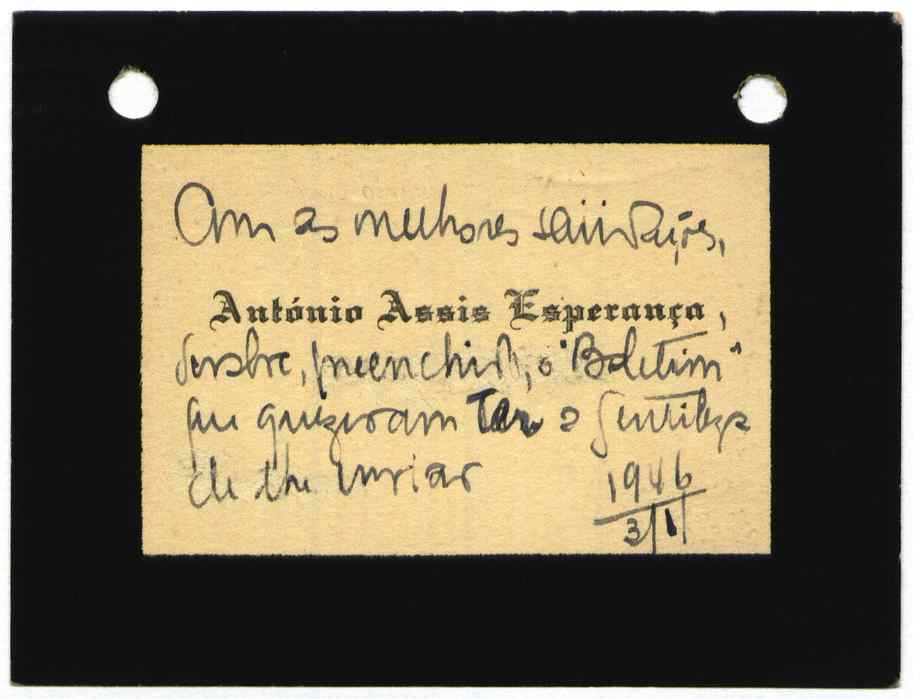 Com as melhores saüdações,
António Assis Esperança,
devolve, preenchido, o "Boletim"
que quizeram ter a gentileza
de lhe enviar
1946
3/1